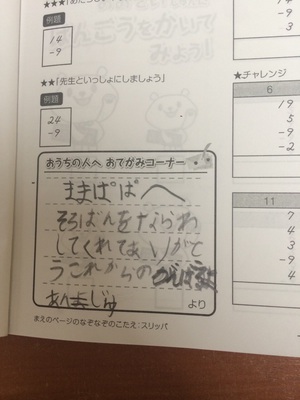 ★★★「あたらしい
例題
14
-9
ばんごうをかいて
みよう」
★★「先生といっしょにしましょう」
例題
24
-9
おうちの人へ おてがみコーナー
ままぱぱへ
そろばんをならわ
してくれてありがと
うこれからの
より
まえのページのなぞなぞのこたえ：スリッパ
3
★チャレンジ
6
19
5
-9
-2
11
7
4
3
-9
4